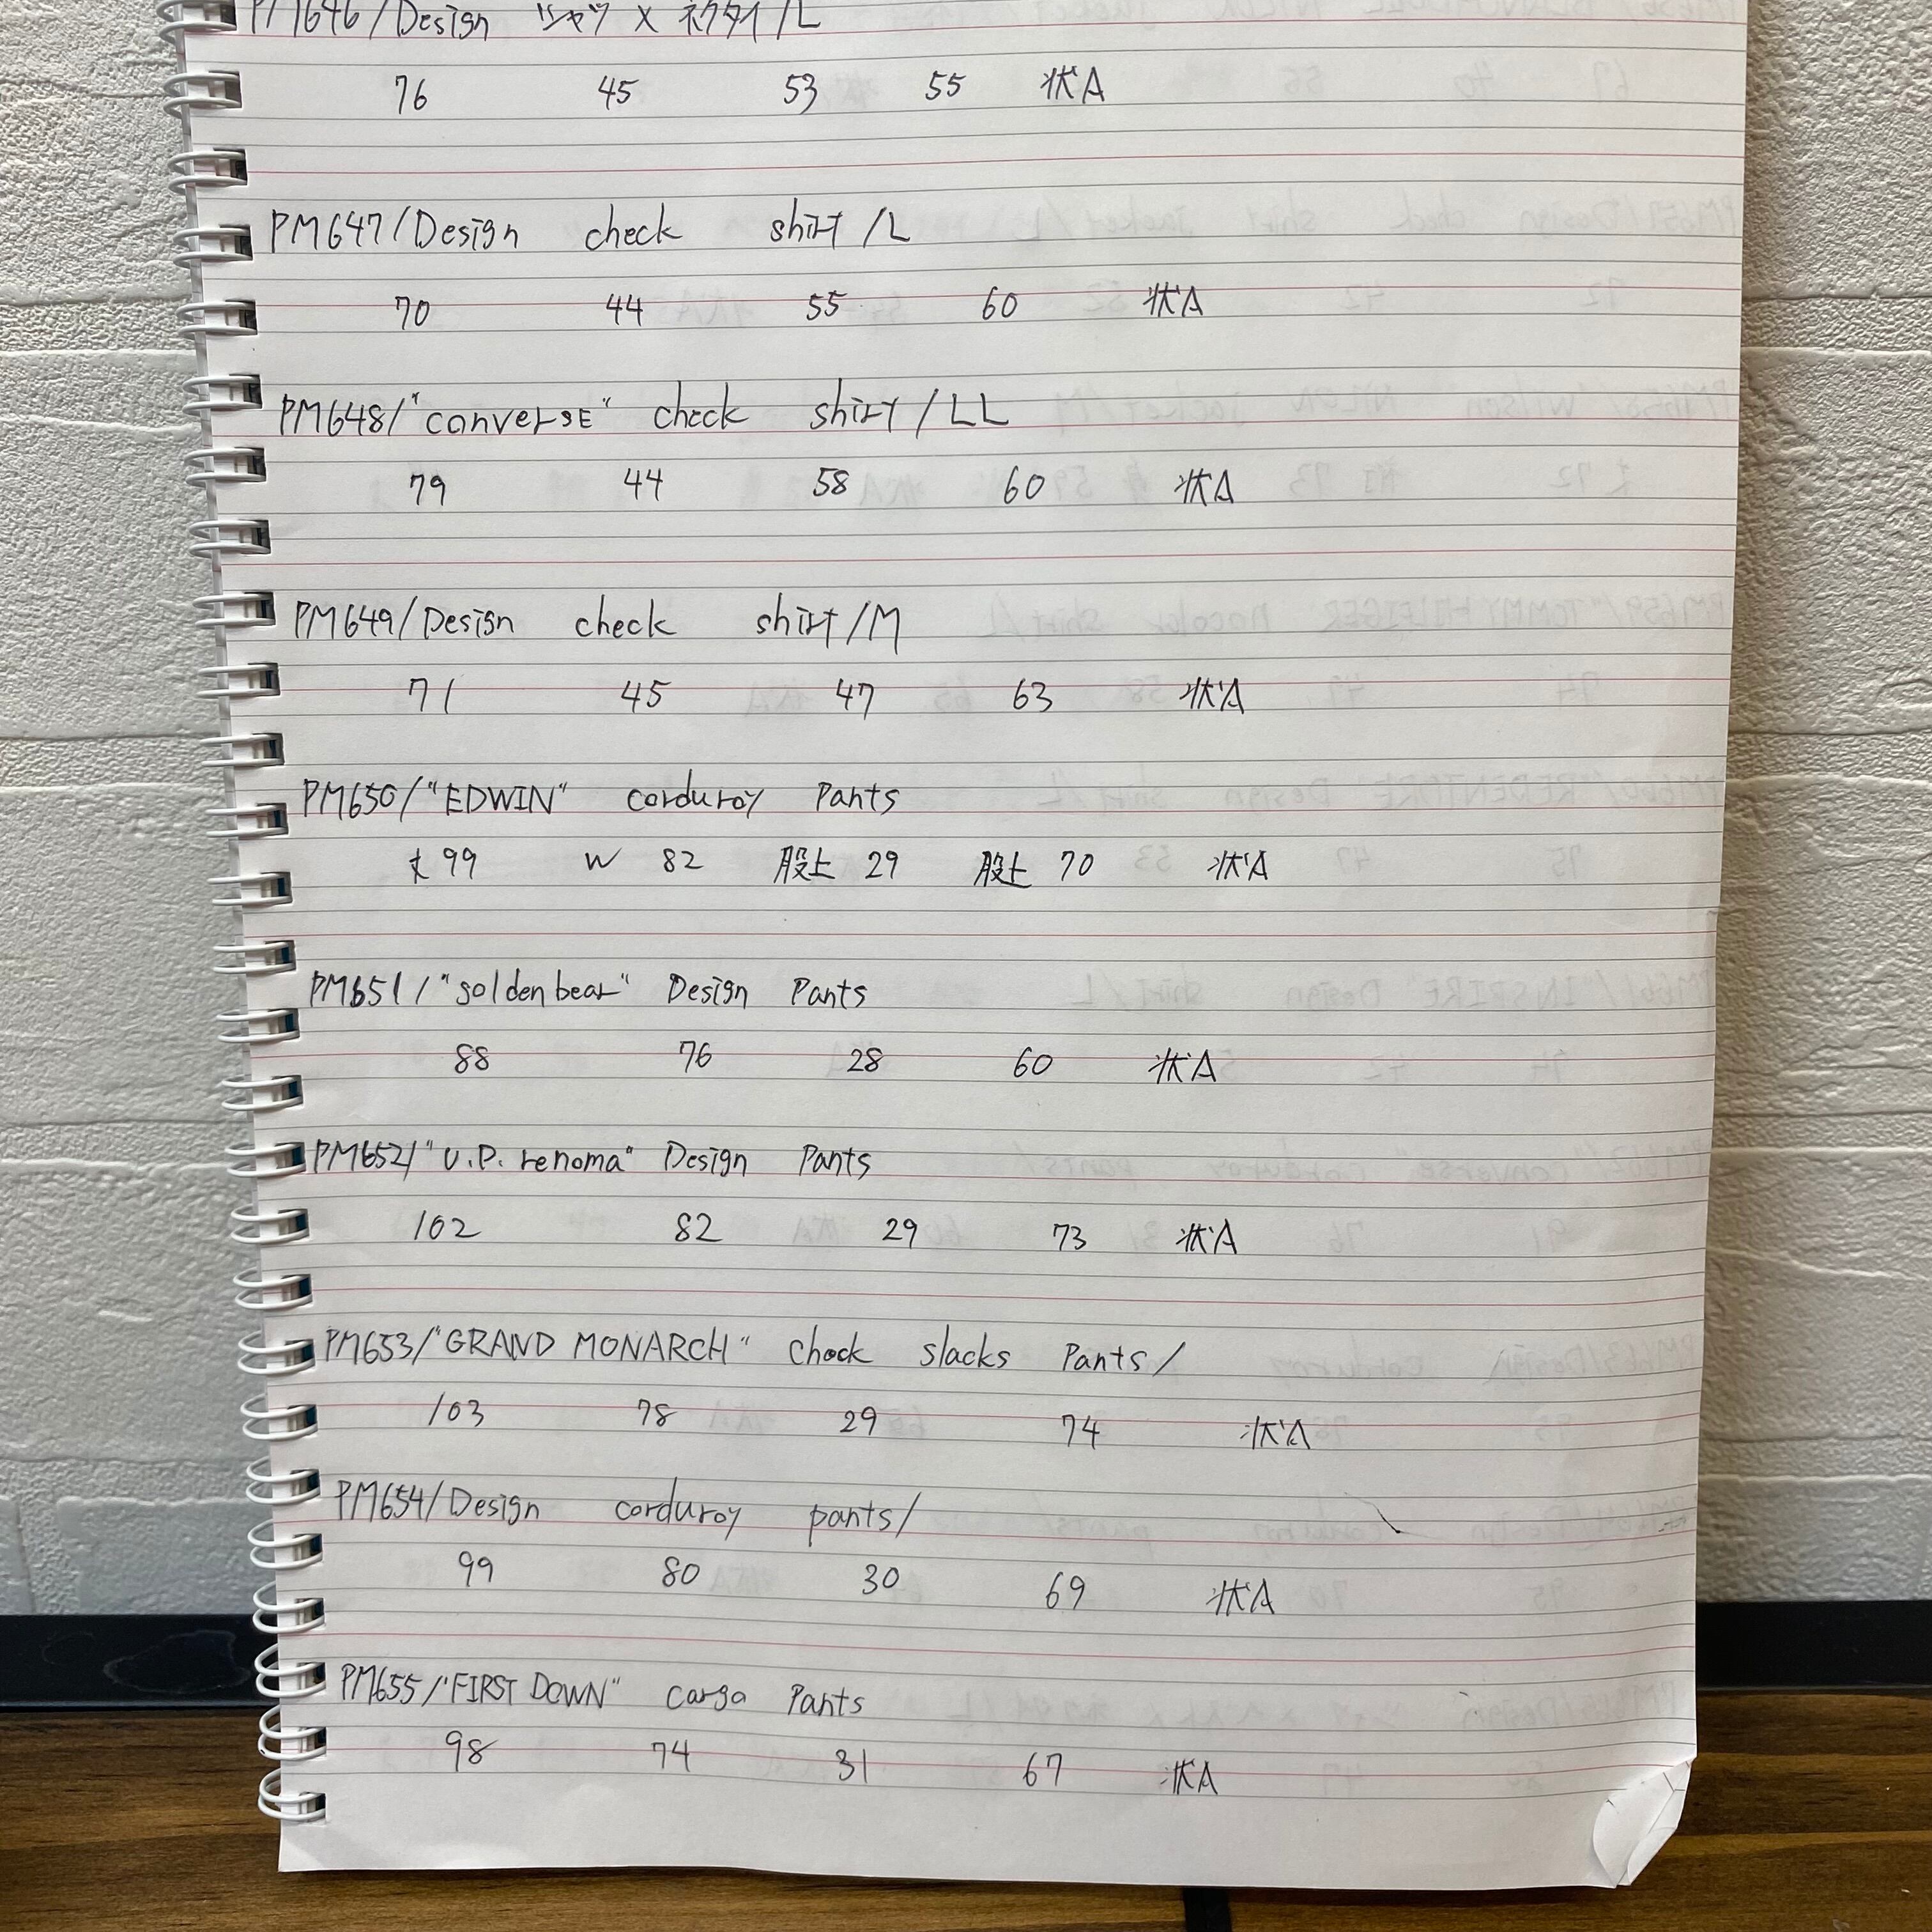 PM646/Design シャツ × ネクタイ/L
76 45 53 55 状A
PM647/Design check shirt/L
70 44 55 60 状A
PM648/"converse" check shirt/LL
79 44 58 60 状A
PM649/Design check shirt/M
71 45 47 63 状A
PM650/"EDWIN" corduroy Pants
丈99 W 82 股上 29 股上 70 状A
PM651/"goldenbear" Design Pants
88 76 28 60 状A
PM652/"U.P. renoma" Design Pants
102 82 29 73 状A
PM653/"GRAND MONARCH" check slacks Pants/
103 78 29 74 状A
PM654/Design corduroy pants/
99 80 30 69 状A
PM655/"FIRST DOWN" cargo Pants
98 74 31 67 状A